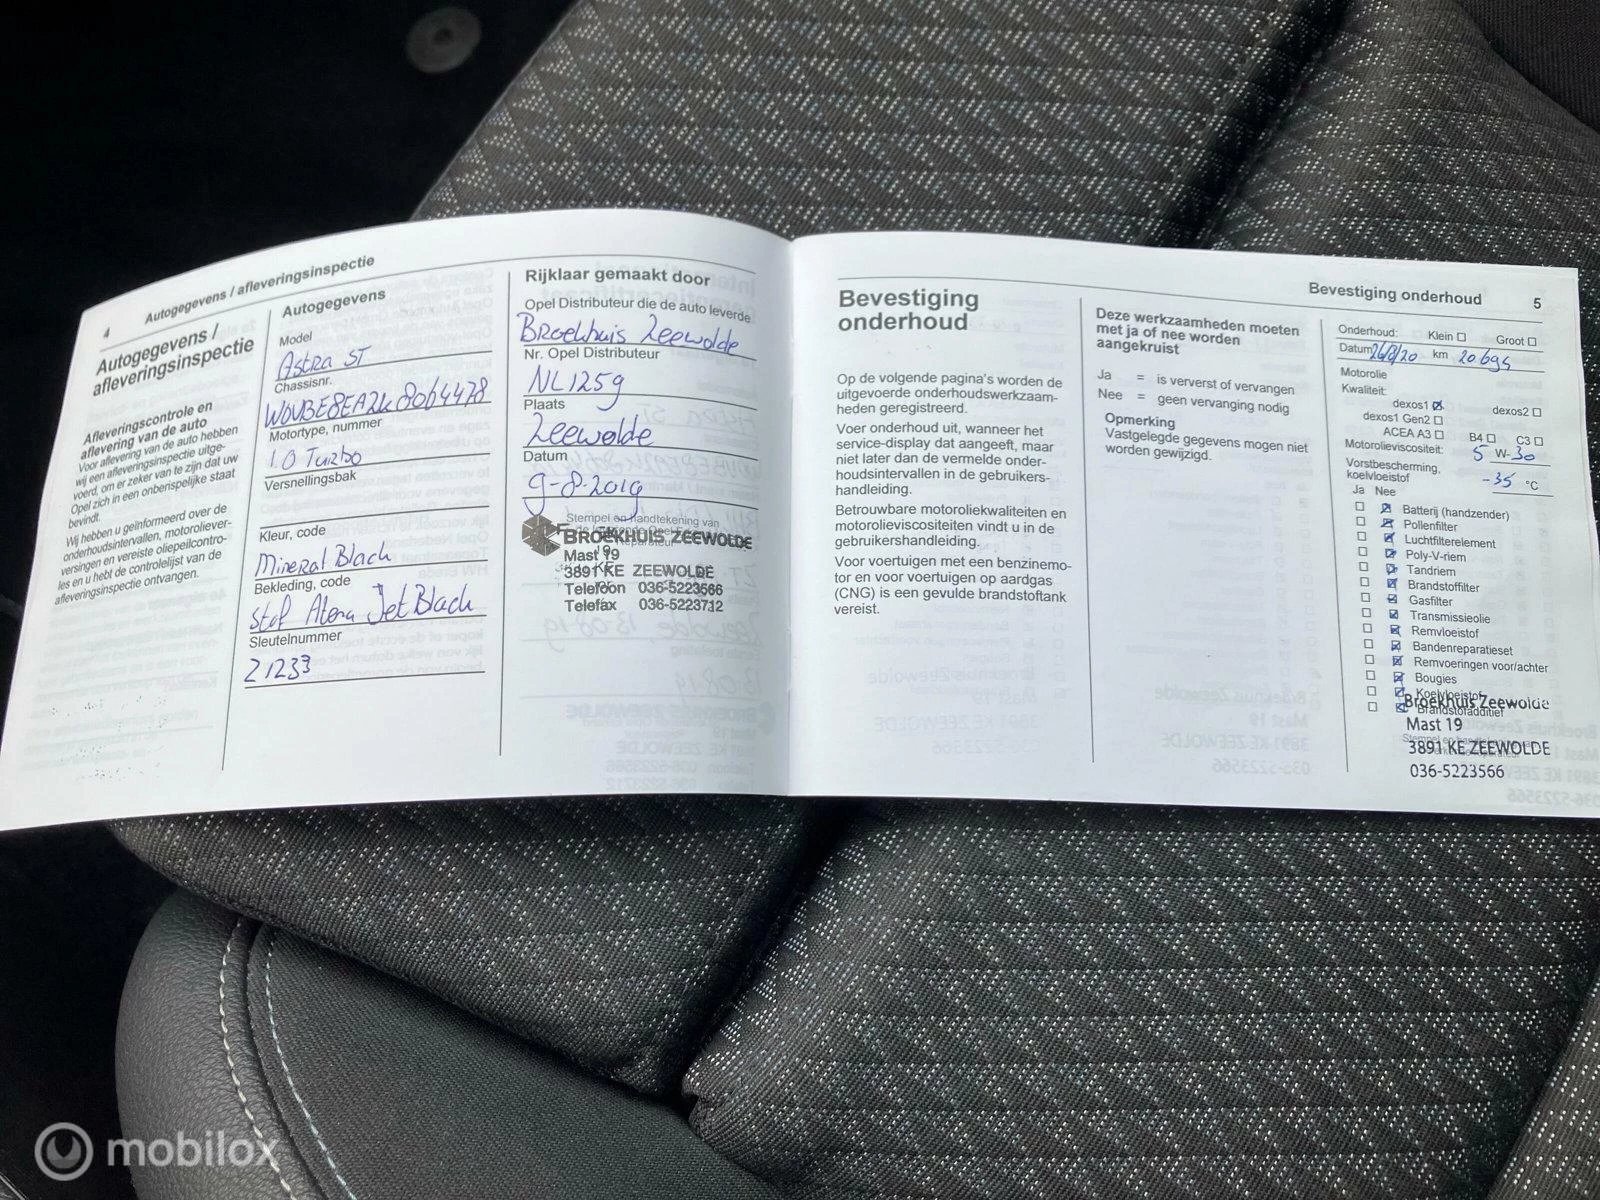 4
Autogegevens / afleveringsinspectie
Autogegevens /
afleveringsinspectie
Afleveringscontrole en
aflevering van de auto
Voor aflevering van de auto hebben
wij een afleveringsinspectie uitge-
voerd, om er zeker van te zijn dat uw
Opel zich in een onberispelijke staat
bevindt.
Wij hebben u geïnformeerd over de
onderhoudsintervallen, motoroliever-
versingen en vereiste oliepeilcontro-
les en u hebt de controlelijst van de
afleveringsinspectie ontvangen.
Autogegevens
Model
Astra ST
Chassisnr.
W0VBE8EA2K8064478
Motortype, nummer
1.0 Turbo
Versnellingsbak
Kleur, code
Mineral Black
Bekleding, code
Stof Atena Jet Black
Sleutelnummer
Z1233
Rijklaar gemaakt door
Opel Distributeur die de auto leverde
Broekhuis Zeewolde
Nr. Opel Distributeur
NL125g
Plaats
Zeewolde
Datum
9-8-2019
Stempel en handtekening van
BROEKHUIS ZEEWOLDE
Mast 19
3891 KE ZEEWOLDE
Telefoon 036-5223566
Telefax 036-5223712
Bevestiging onderhoud
5
Bevestiging
onderhoud
Op de volgende pagina's worden de
uitgevoerde onderhoudswerkzaam-
heden geregistreerd.
Voer onderhoud uit, wanneer het
service-display dat aangeeft, maar
niet later dan de vermelde onder-
houdsintervallen in de gebruikers-
handleiding.
Betrouwbare motoroliekwaliteiten en
motorolieviscositeiten vindt u in de
gebruikershandleiding.
Voor voertuigen met een benzinemo-
tor en voor voertuigen op aardgas
(CNG) is een gevulde brandstoftank
vereist.
Deze werkzaamheden moeten
met ja of nee worden
aangekruist
Ja = is ververst of vervangen
Nee = geen vervanging nodig
Opmerking
Vastgelegde gegevens mogen niet
worden gewijzigd.
Onderhoud: Klein Groot
Datum 26/8/20 km 20695
Motorolie
Kwaliteit:
dexos1 dexos2
dexos1 Gen2
ACEA A3 B4 C3
Motorolieviscositeit: 5 W-30
Vorstbescherming,
koelvloeistof -35 °C
Ja Nee
Batterij (handzender)
Pollenfilter
Luchtfilterelement
Poly-V-riem
Tandriem
Brandstoffilter
Gasfilter
Transmissieolie
Remvloeistof
Bandenreparatieset
Remvoeringen voor/achter
Bougies
Koelvloeistof
Brandstofadditief
Broekhuis Zeewolde
Mast 19
3891 KE ZEEWOLDE
036-5223566
mobilox